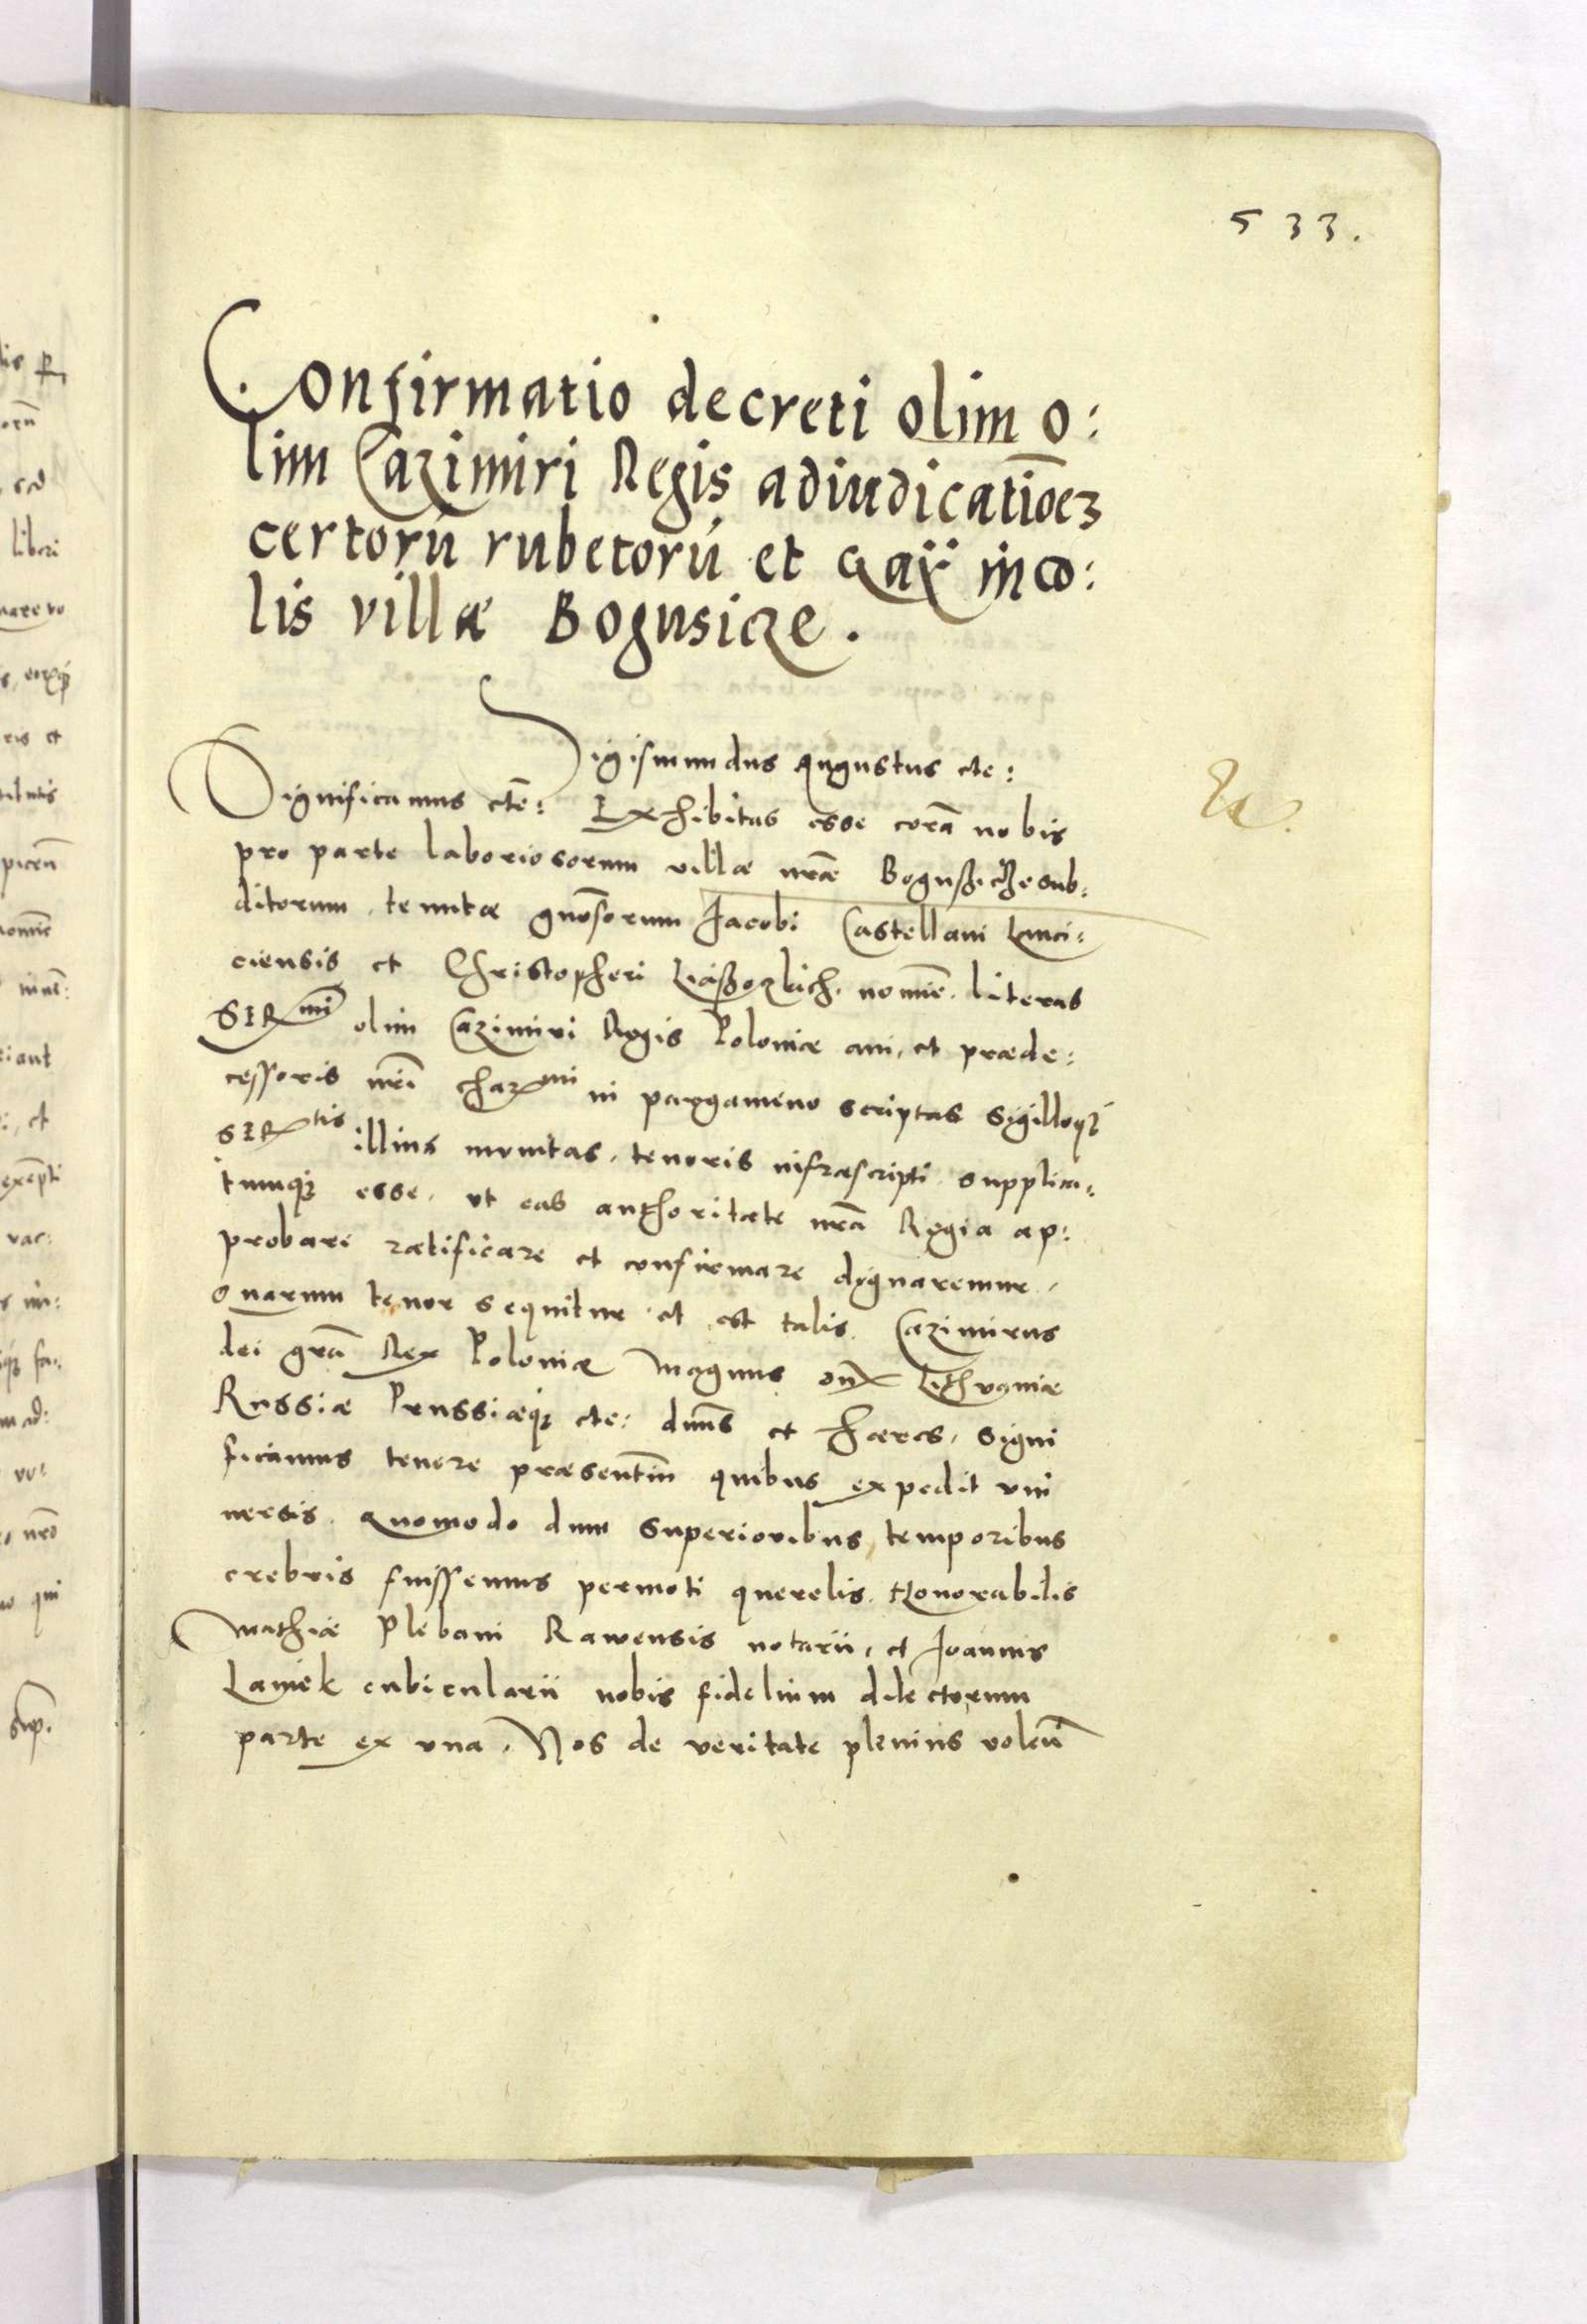 533.
Confirmatio decreti olim o:
lim Cazimiri Regis adiudicatiõez
certorũ rubetorũ et inco:
lis villæ Bogusicze.
Sigismundus Augustus etc:
Significamus etc̃: Exhibitas esse corã nobis
pro parte laboriosorum villæ nr̃æ Boguszicze sub:
ditorum tenutæ gnõsorum Jacobi Castellani Lanci:
ciensis et Christopheri nomĩe literas
SIRmi olim Cazimiri Regis Poloniæ aui, et præde:
cessoris nr̃i charmi in pargameno scriptas sigilloq́
SIRtis illius munitas, tenoris infrascripti supplica:
tumq́ esse, ut eas authoritate nr̃a Regia ap:
probare ratificare et confirmare dignaremur.
Quarum tenor sequitur et est talis. Cazimirus
dei grã Rex Poloniæ Magnus Dux Lithvaniæ
Russiæ Prussiæq́ etc: dnũs et hæres, signi
ficamus tenore præsentiũ quibus expedit vni
uersis. Quomodo dum superioribus temporibus
crebris fuissemus permoti querelis Honorabilis
Mathiæ Plebani Rawensis notarii, et Joannis
Laniek cubicularii nobis fidelium dilectorum
parte ex vna. Nos de veritate plenius voleñ